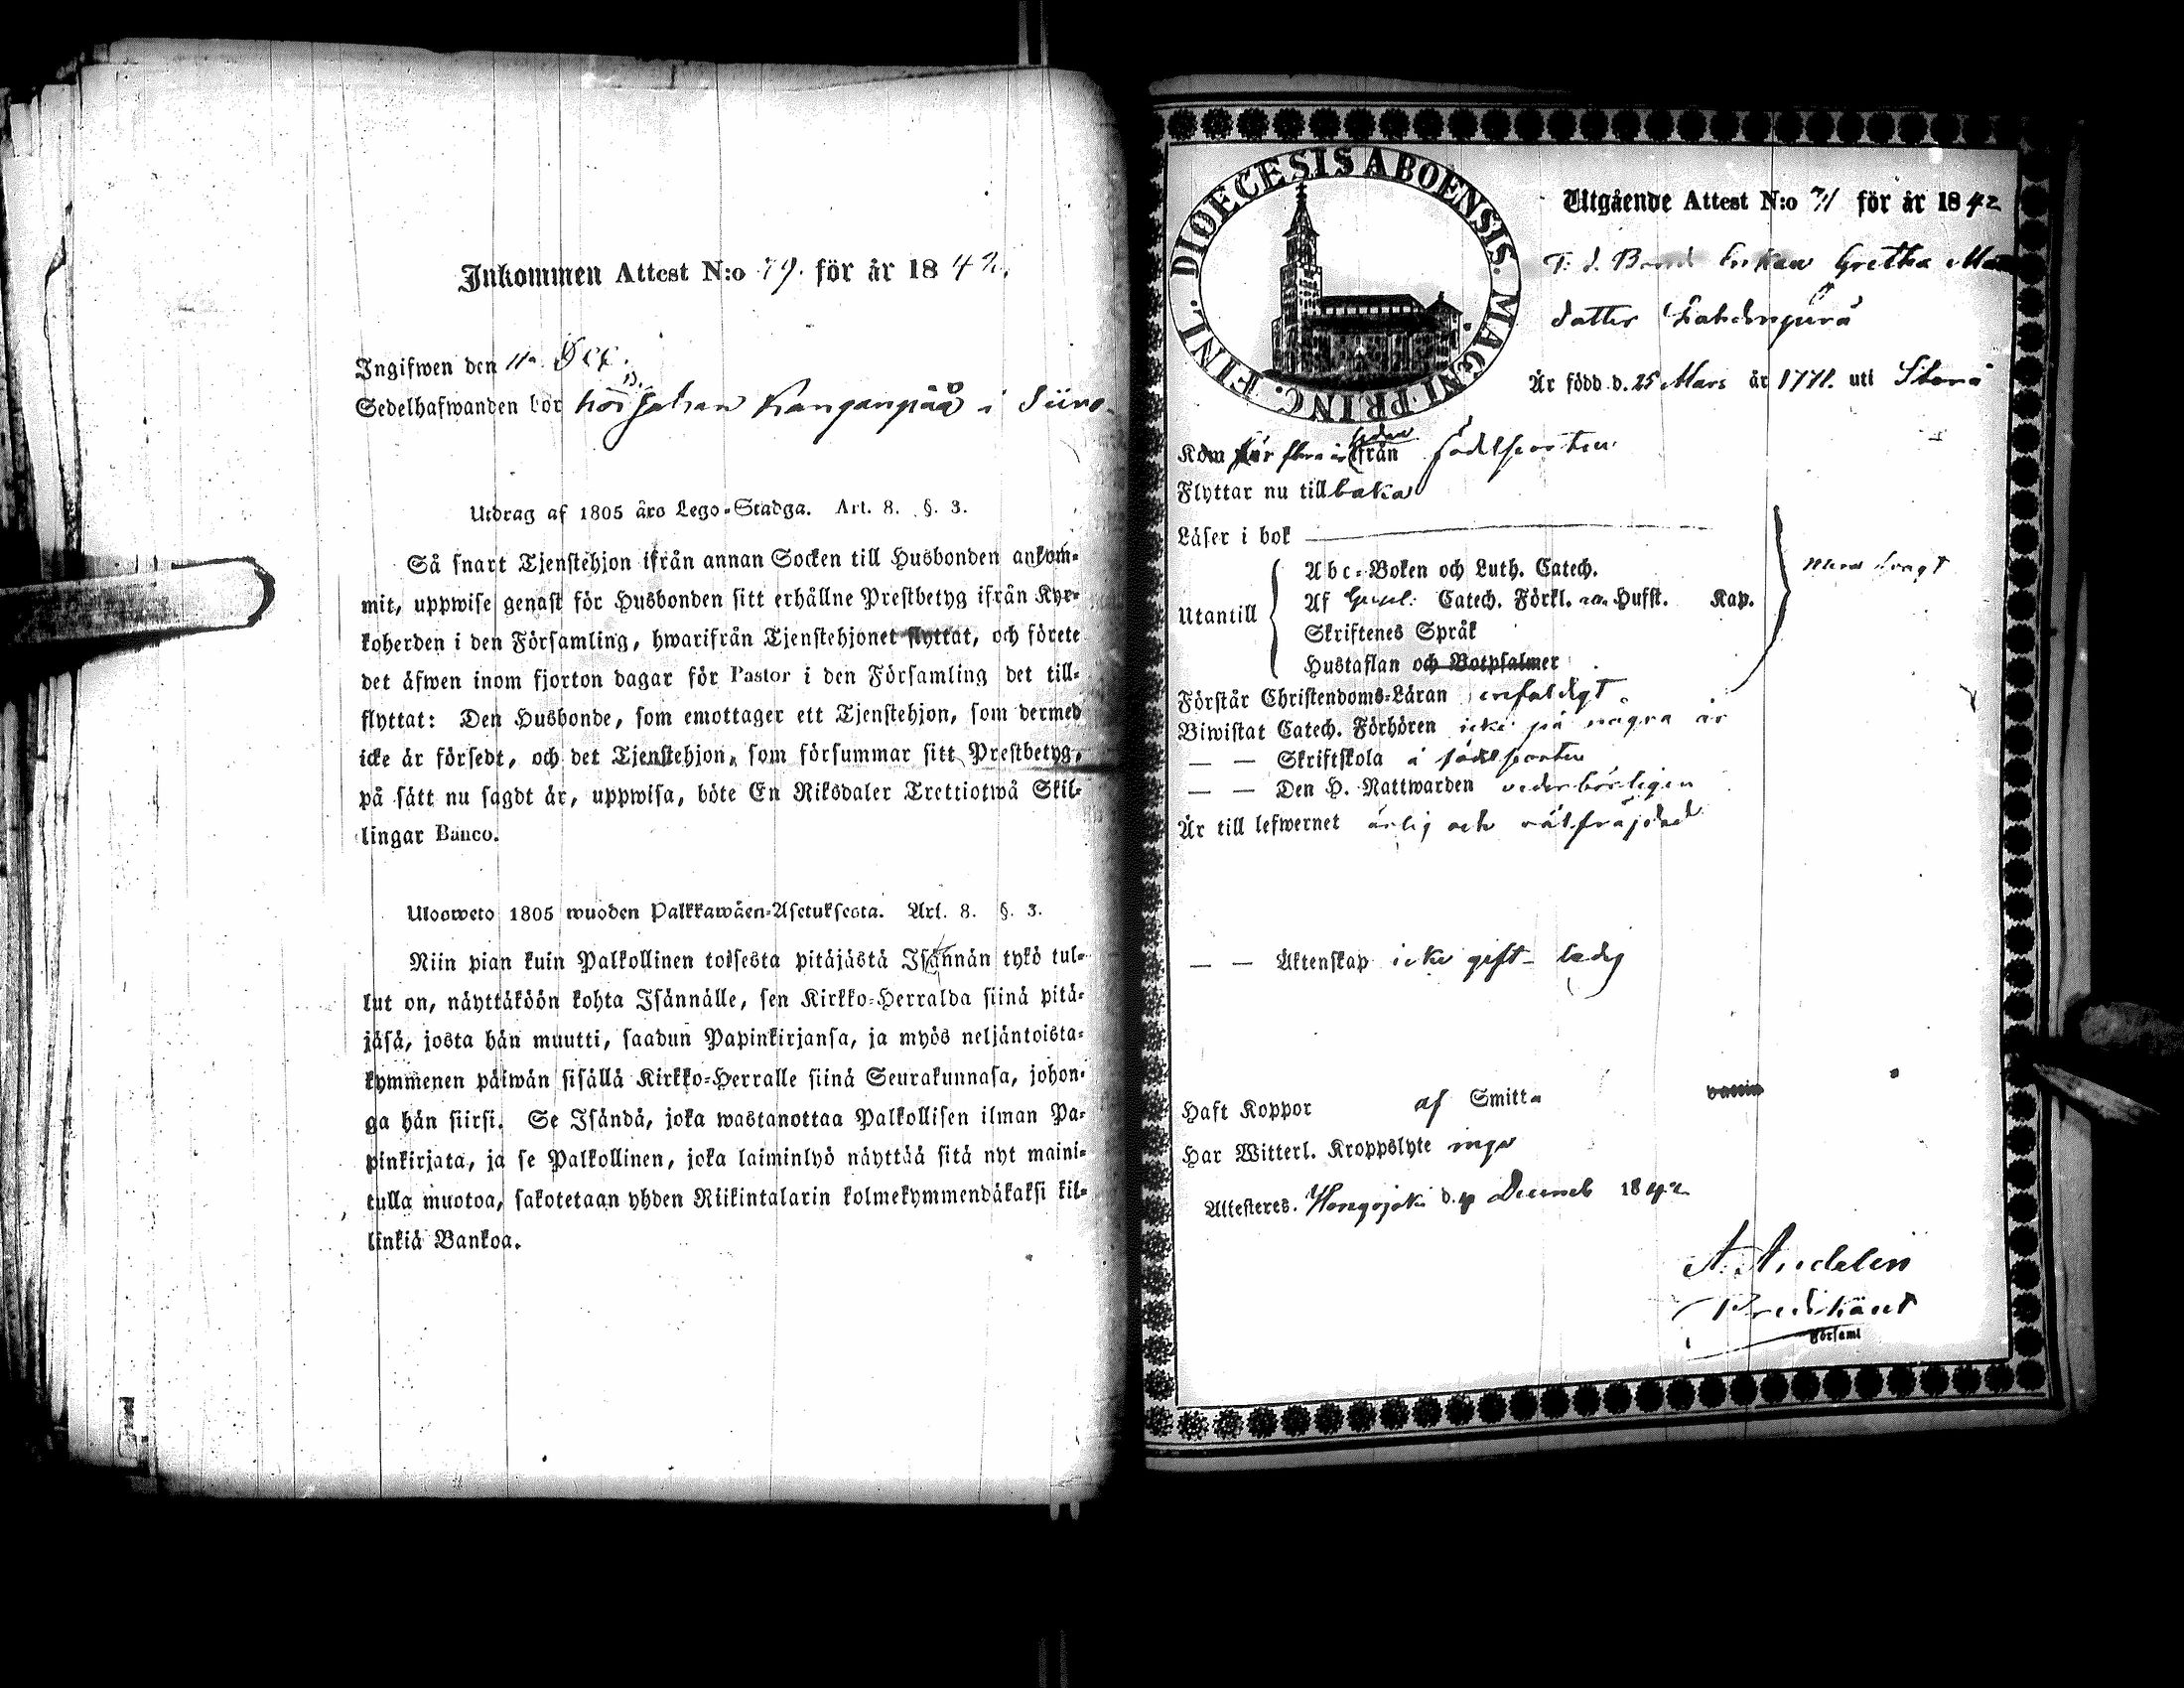 Inkommen Attest N:o 79. för år 1842.
Ingifwen den 11
Sedelhafwanden bor hos Johan Kanganpää i
Utdrag af 1805 års Lego-Stadga. Art. 8. §. 3.
Så snart Tjenstehjon ifrån annan Socken till Husbonden ankom-
mit, uppwise genast för Husbonden sitt erhållne Prestbetyg ifrån Kyr-
koherden i den Församling, hwarifrån Tjenstehjonet flyttat, och förete
det äfwen inom fjorton dagar för Pastor i den Församling det till-
flyttat: Den Husbonde, som emottager ett Tjenstehjon, som dermed
icke är försedt, och det Tjenstehjon, som försummar sitt Prestbetyg,
på sätt nu sagdt är, uppwisa, böte En Riksdaler Trettiotwå Skil-
lingar Banco.
Uloosweto 1805 wuoden Palkkawäen-Asetuksesta. Art. 8. §. 3.
Niin pian kuin Palkollinen toisesta pitäjästä Isännän tykö tul-
lut on, näyttäköön kohta Isännälle, sen Kirkko-Herralda siinä pitä-
jäsä, josta hän muutti, saadun Papinkirjansa, ja myös neljäntoista-
kymmenen päiwän sisällä Kirkko-Herralle siinä Seurakunnasa, johon-
ga hän siirsi. Se Isändä, joka wastanottaa Palkollisen ilman Pa-
pinkirjata, ja se Palkollinen, joka laiminlyö näyttää sitä nyt maini-
tulla muotoa, sakotetaan yhden Riikintalarin kolmekymmendäkaksi kil-
linkiä Bankoa.
DIOECESIS ABOENSIS. MAGNI PRINC. FINL.
Utgående Attest N:o 71 för år 1842
F. d. Bond Enkan Gretha
dotter
Är född d. 25 Mars år 1771. uti Storå
Kom för flera år sedan ifrån födelseorten
Flyttar nu tillbaka
Läser i bok
Utantill
Abc-Boken och Luth. Catech.
Af Catech. Förkl. Hufst. Kap.
Skriftenes Språk
Hustaflan och Botpsalmer
med svagt
Förstår Christendoms-Läran enfaldigt
Biwistat Catech. Förhören icke på några år
— — Skriftskola å födelseorten
— — Den H. Nattwarden vederbörligen
Är till lefwernet ärlig och välfräjdad
— — Äktenskap icke gift – ledig
Haft Koppor af Smitta vaccin
Har Witterl. Kroppslyte inga
Attesteres. Hongojoki d. 4 Decemb 1842
A. Andelin
Predikant
Församl